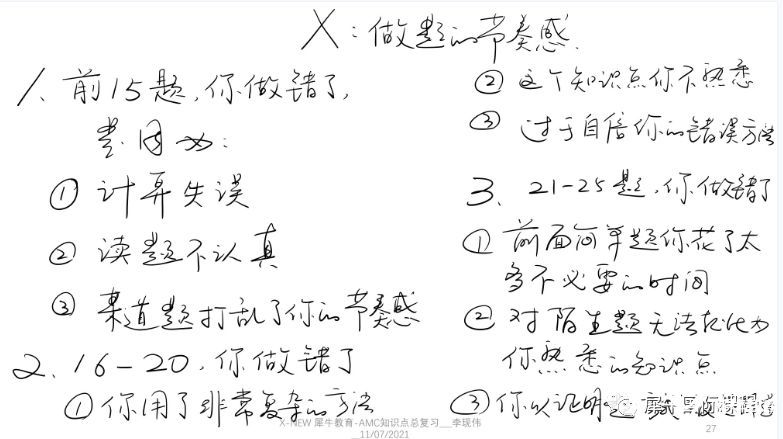 X：做题的节奏感
1、前15题，你做错了，
是因为：
① 计算失误
② 读题不认真
③ 某道题打乱了你的节奏感
2、16-20，你做错了
① 你用了非常复杂的方法
② 这个知识点你不熟悉
③ 过于自信你的错误方法
3、21-25题，你做错了
① 前面简单题你花了太
多不必要的时间
② 对陌生题无法转化为
你熟悉的知识点
③ 你以证明
X-NEW 犀牛教育-AMC知识点总复习__李现伟
__11/07/2021
27